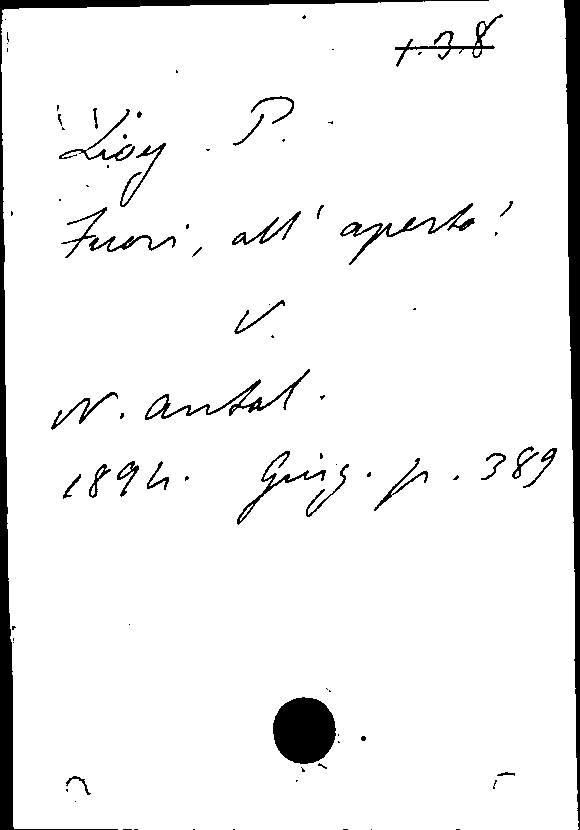 1.3.8
Lioy P.
Fuori, all' aperto!
V.
N. Antol.
1894. Giug. p. 389